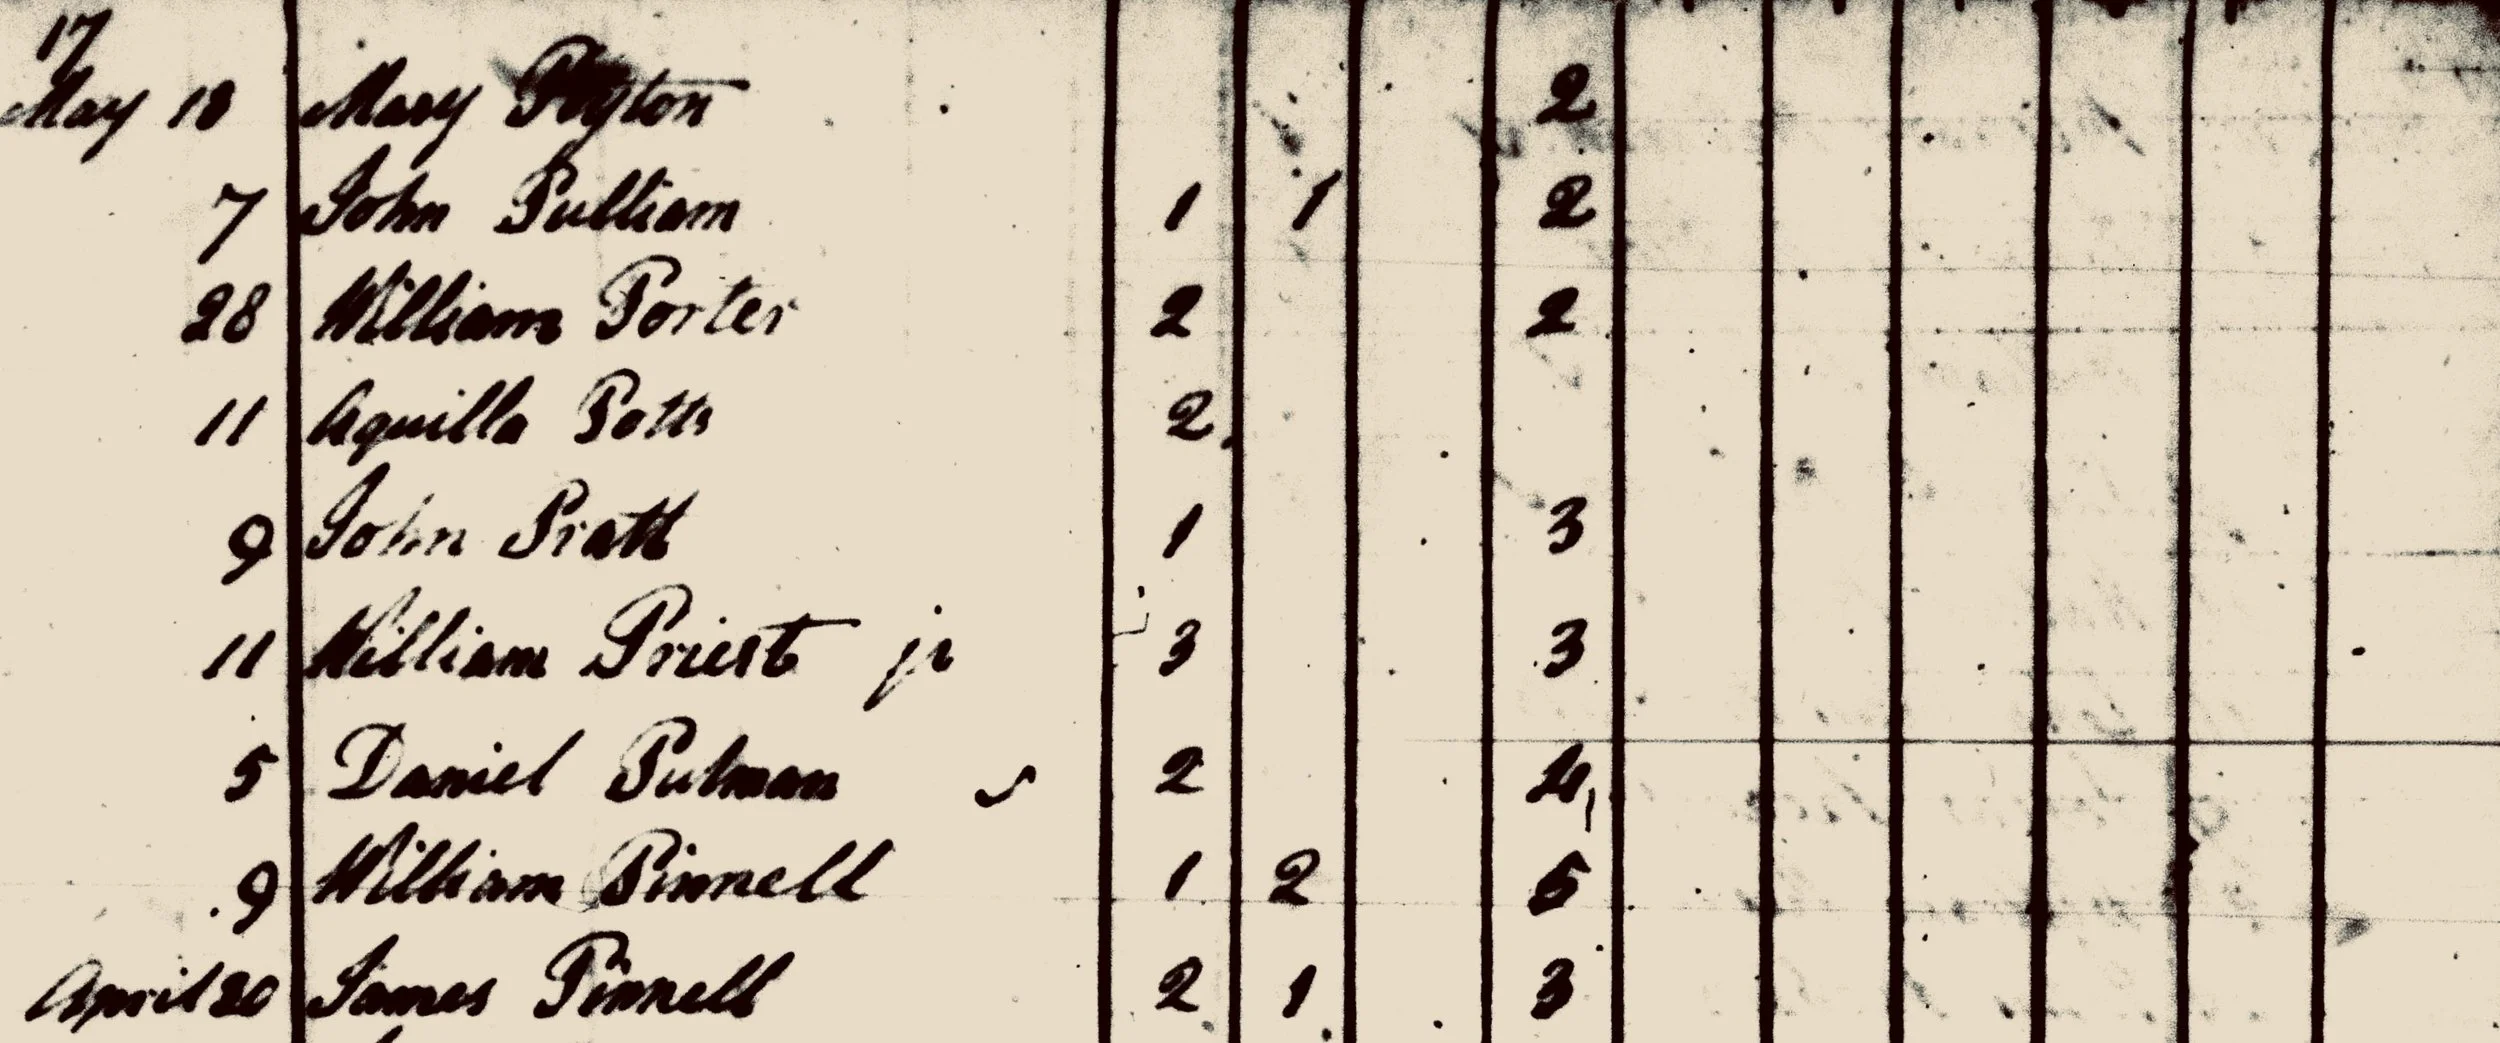 17
May 18 Mary Peyton 2
7 John Pulliam 1 1 2
28 William Porter 2 2
11 Aquilla Potts 2
9 John Pratt 1 3
11 William Priest jr 3 3
5 Daniel Pulman 2 4
9 William Pinnell 1 2 5
April 20 James Pinnell 2 1 3